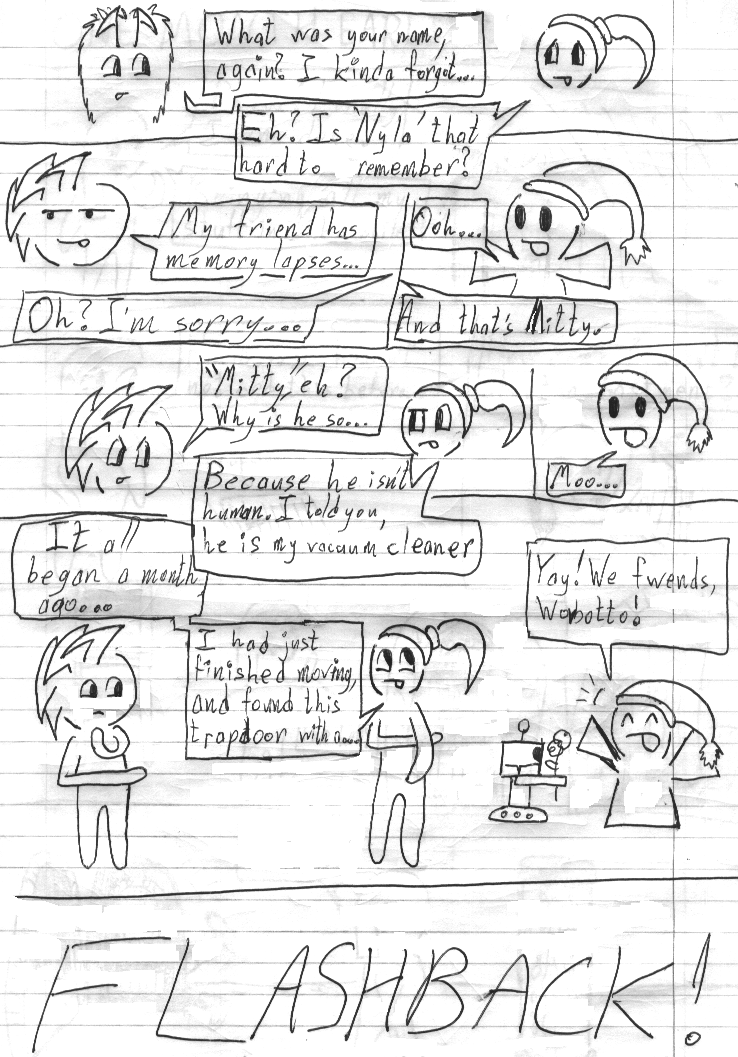 What was your name,
again? I kinda forgot...
Eh? Is 'Nyla' that
hard to remember?
My friend has
memory lapses...
Ooh...
Oh? I'm sorry....
And that's Mitty.
"Mitty," eh?
Why is he so...
Because he isn't
human. I told you,
he is my vacuum cleaner
Moo...
It all
began a month
ago....
I had just
finished moving,
and found this
trapdoor with a....
Yay! We fwends,
Wobotto!
FLASHBACK!